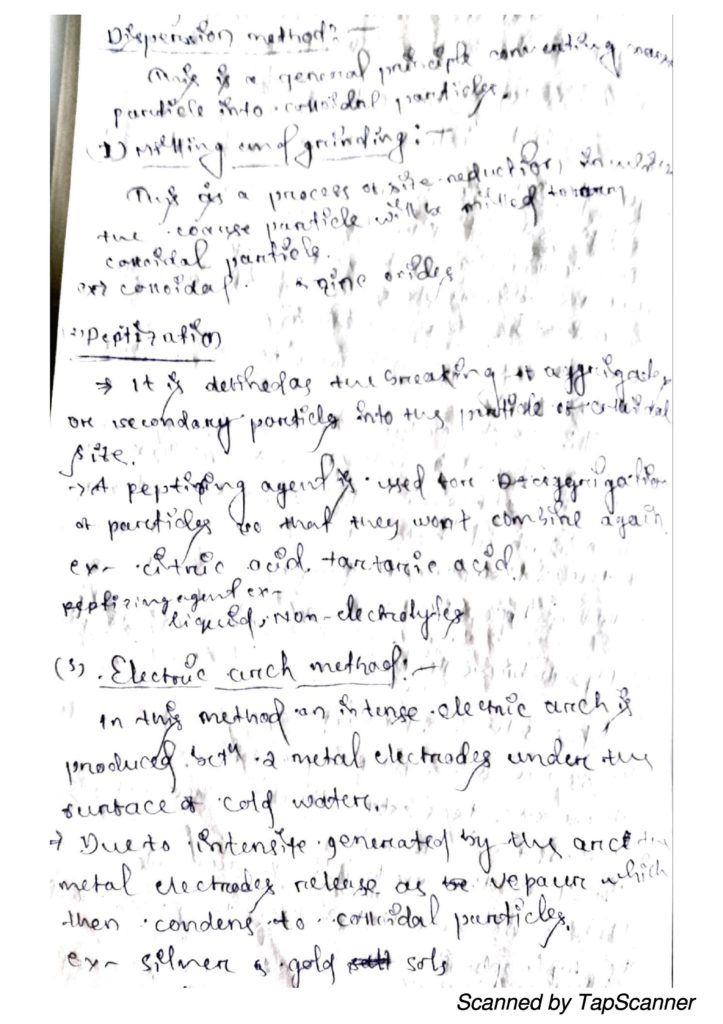 Dispersion method :-
This is a general principle converting
particle into colloidal particles.
(1) Milling and grinding :-
This is a process of size reduction, in
the coarse particle will be milled to
colloidal particle.
ex> colloidal zinc oxides
Peptization
→ It is defined as the breaking of aggrigades
or secondary particles into the particle of colloidal
size.
→ A peptizing agent is used for Deaggrigation
of particles so that they won't combine again
ex- citric acid, tartaric acid,
peptizing agent ex-
liquid, Non-electrolytes
(3) . Electric arch method :-
In this method an intense electric arch is
produced betn 2 metal electrodes under the
surface of cold water.
→ Due to intensite generated by the arc the
metal electrodes release as vepaur which
then condens to colloidal particles.
ex- silmer & gold sols
Scanned by TapScanner